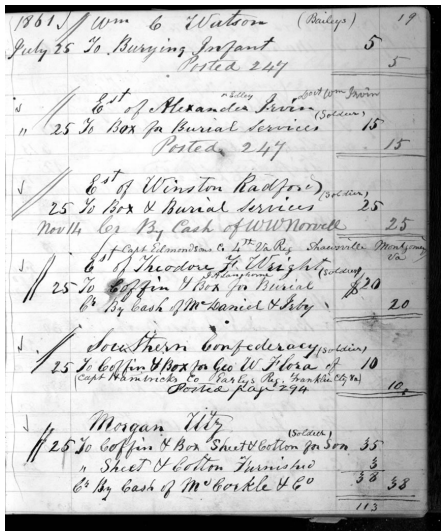 1861 Wm C Watson (Baileys) 19
July 25 To Burying Infant 5
Posted 247 5
Est of Alexander Irvin (Soldier)
" 25 To Box for Burial Services 15
Posted 247 15
Est of Winston Radford (Soldier)
25 To Box & Burial Services 25
Nov 14 Cr By Cash of WW Norvell 25
Capt Edmondsons Co 4th Va Reg Shawsville Montgomery Va
Est of Theodore F. Wright (Soldier)
25 To Coffin & Box for Burial $20
Cr By Cash of McDaniel & Irby 20
Southern Confederacy (Soldier)
25 To Coffin & Box for Geo W Flora of 10
(Capt Hambricks Co Earlys Reg. Franklin Cty Va)
Posted page 294 10
Morgan Utz (Soldier)
25 To Coffin & Box Sheet & Cotton for Son 35
" Sheet & Cotton Furnished 3
Cr By Cash of McCorkle & Co 38 38
113